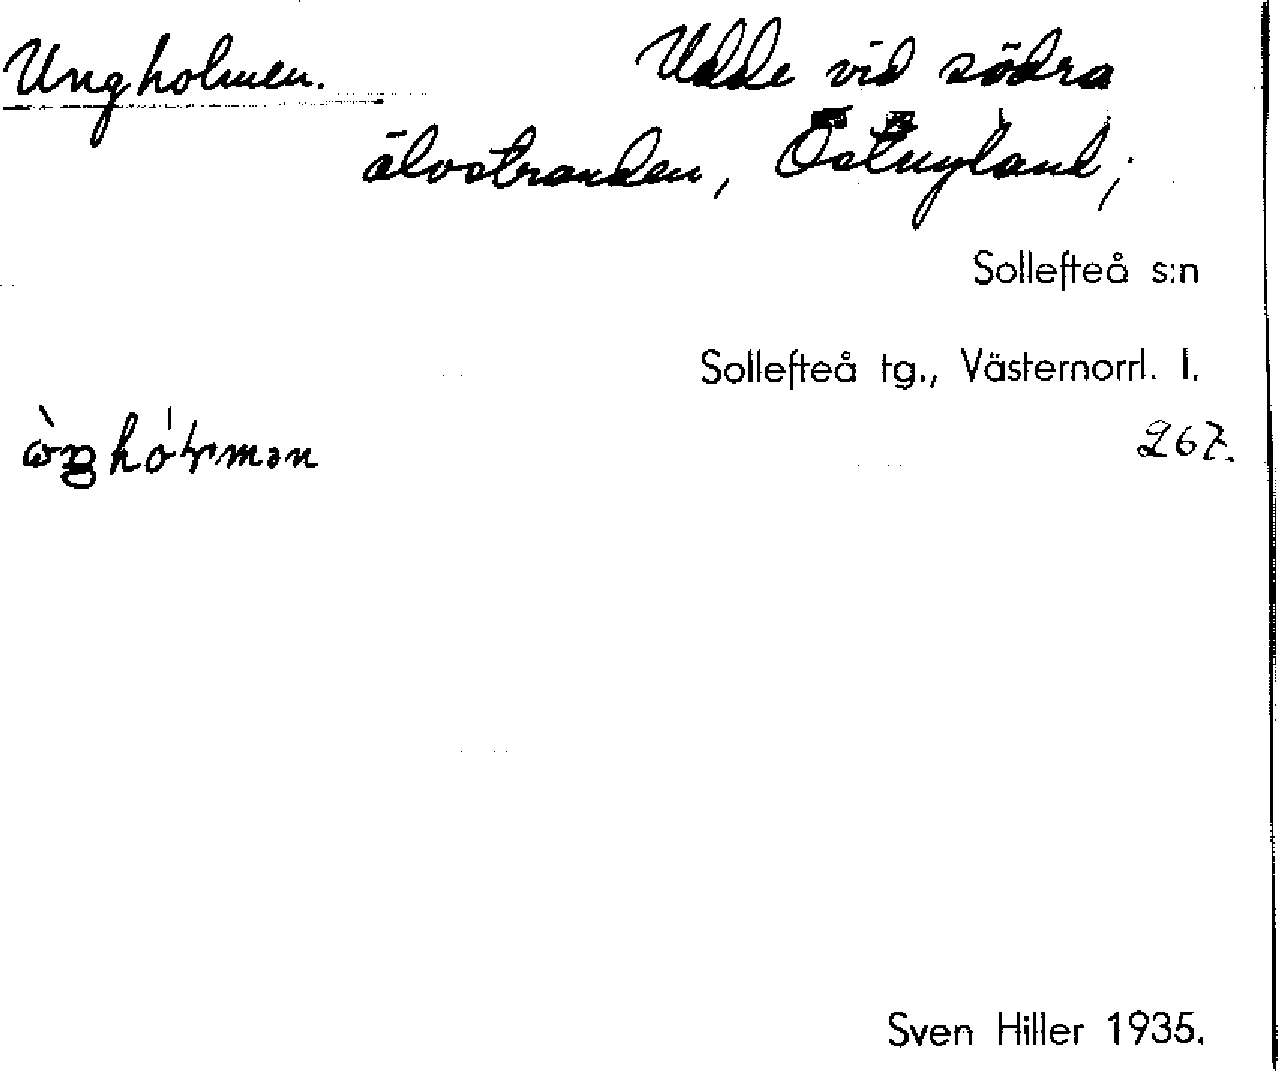 Ungholmen.
Udde vid södra
älvstranden, Östnyland;
Sollefteå s:n
Sollefteå tg., Västernorrl. l.
267.
Sven Hiller 1935.